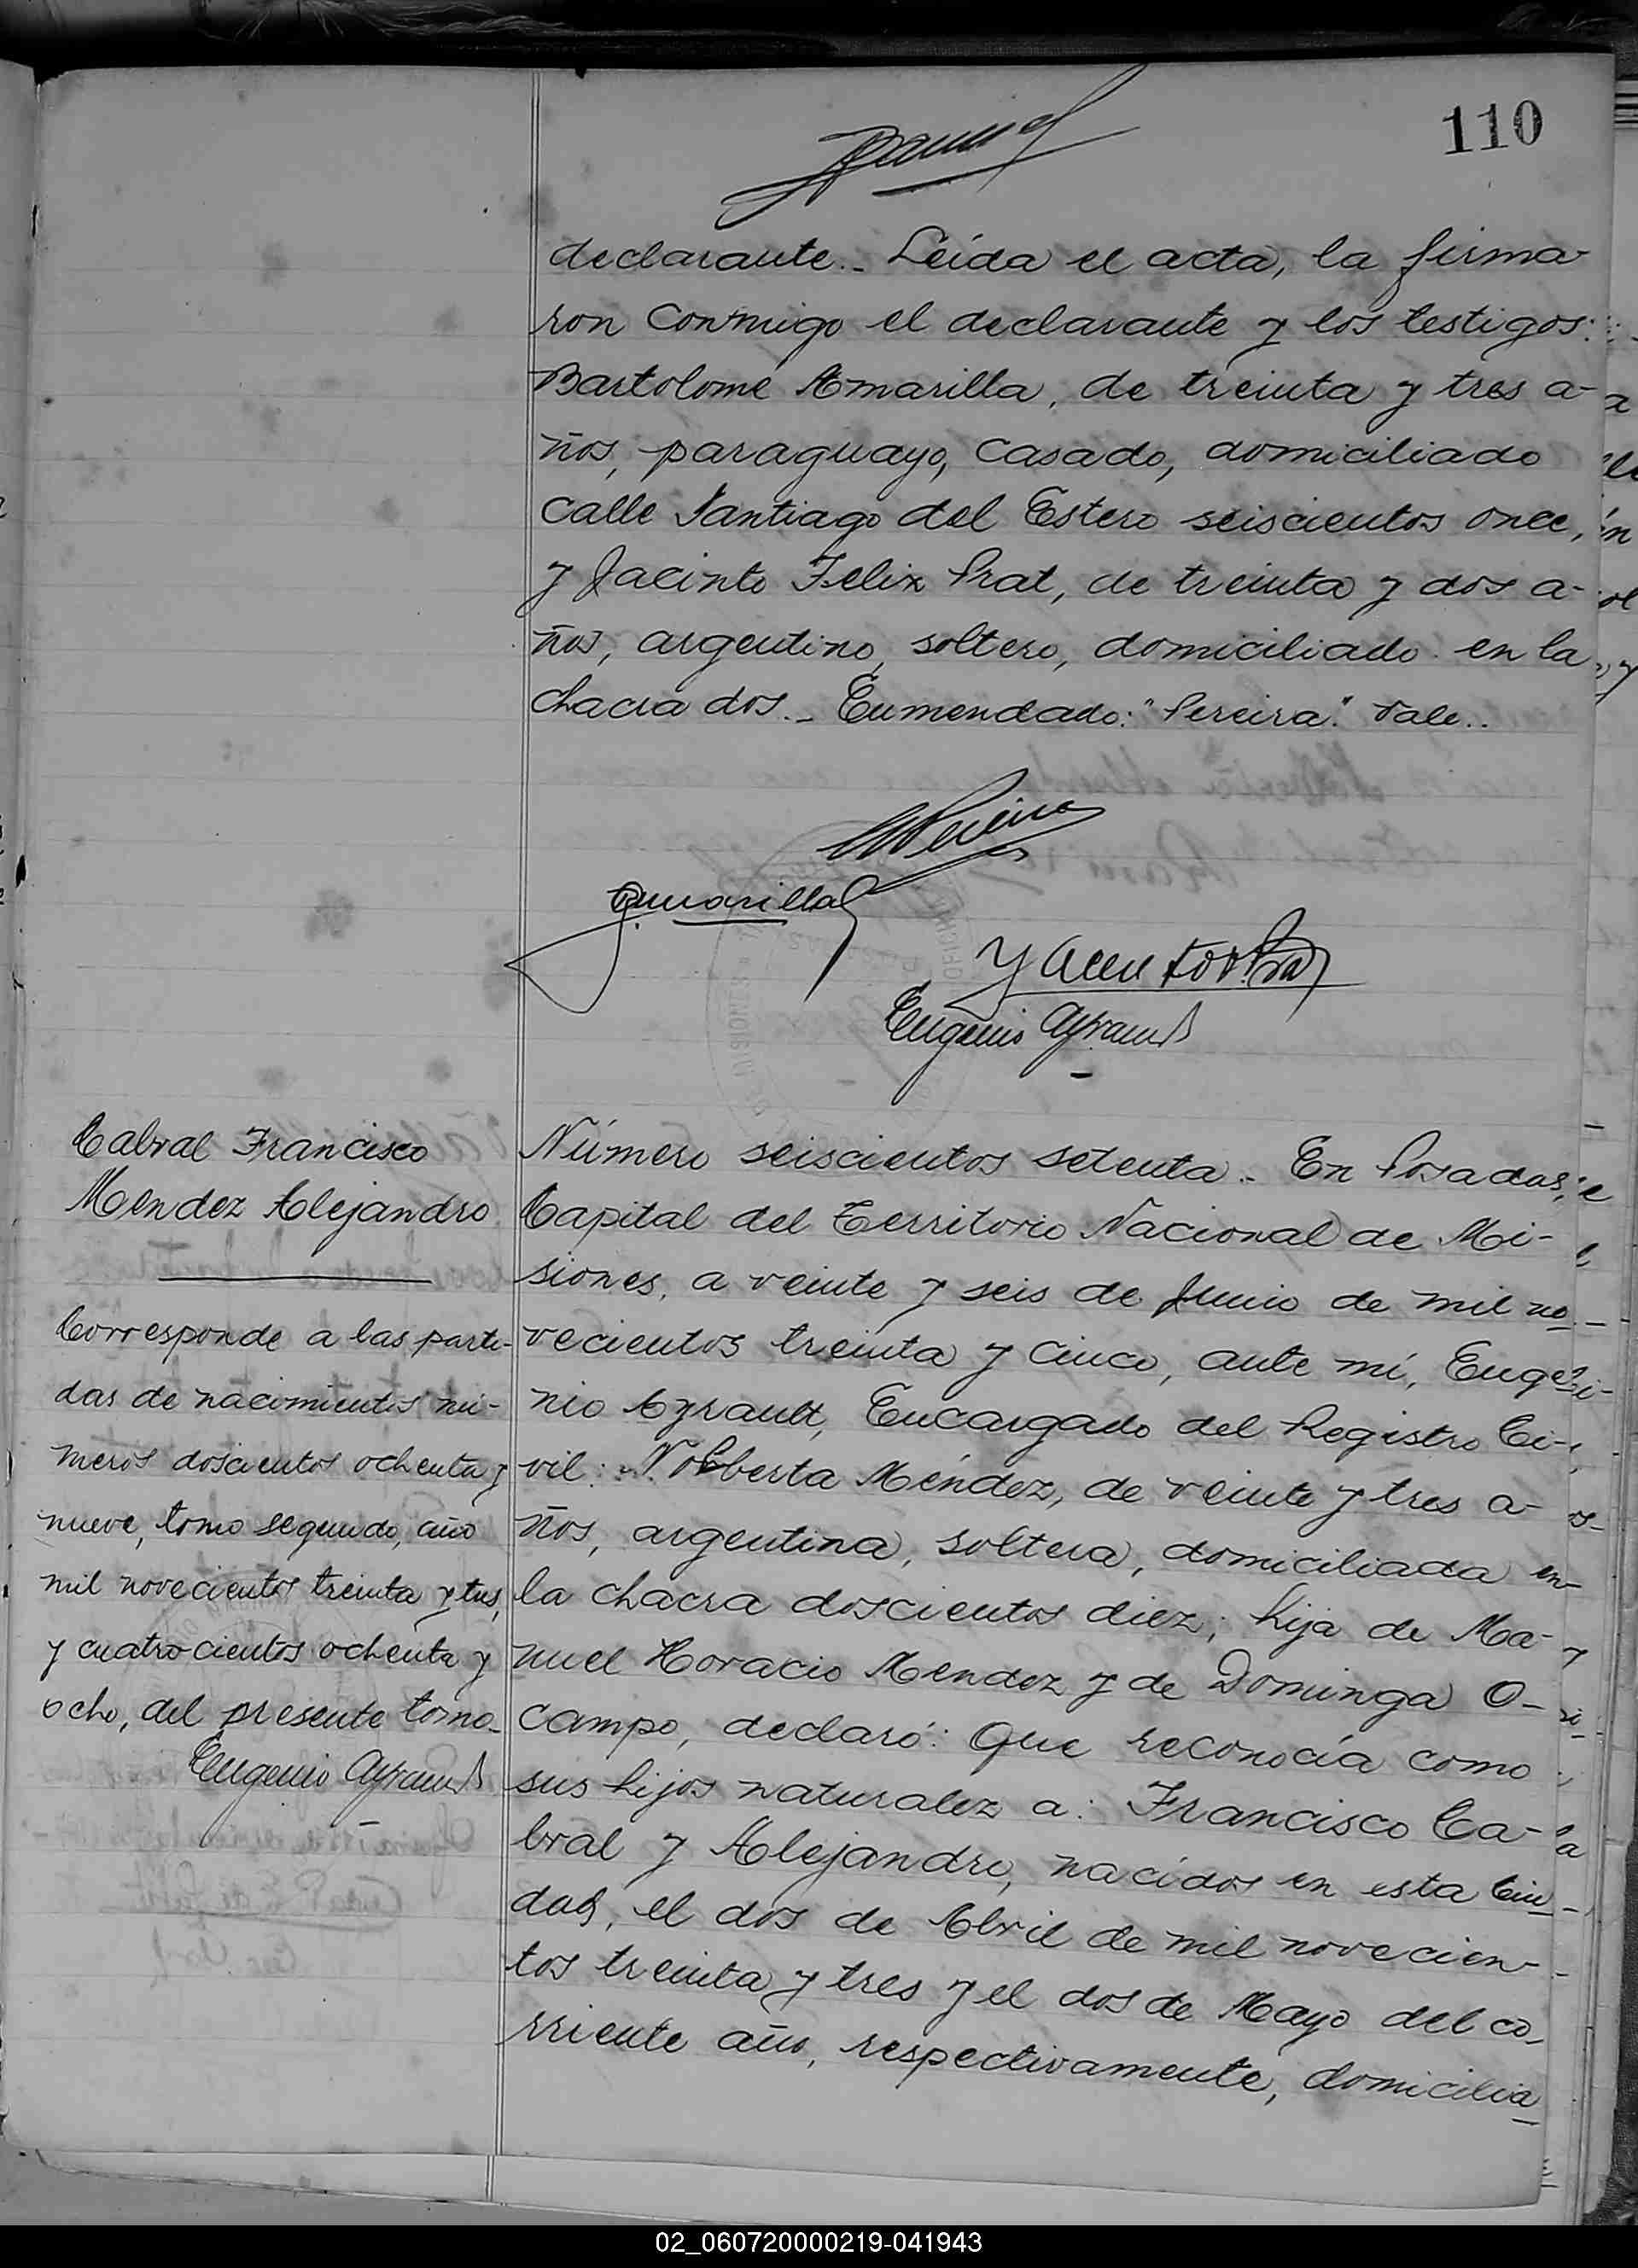 110
declarante.- Leída el acta, la firma-
ron conmigo el declarante y los testigos:
Bartolomé Amarilla, de treinta y tres a-
ños, paraguayo, casado, domiciliado
calle Santiago del Estero seiscientos once,
y Jacinto Felix Prat, de treinta y dos a-
ños, argentino, soltero, domiciliado en la
chacra dos.- Enmendado: "Pereira". Vale..
Pereira
Amarilla
Yacinto F. Prat
Eugenio Ayrault
Cabral Francisco
Mendez Alejandro
Corresponde a las parti-
das de nacimientos nú-
meros doscientos ochenta y
nueve, tomo segundo, año
mil novecientos treinta y tres,
y cuatrocientos ochenta y
ocho, del presente tomo.
Eugenio Ayrault
Número seiscientos setenta.- En Posadas,
Capital del Territorio Nacional de Mi-
siones, a veinte y seis de Junio de mil no-
vecientos treinta y cinco, ante mí, Euge-
nio Ayrault, Encargado del Registro Ci-
vil: Norberta Méndez, de veinte y tres a-
ños, argentina, soltera, domiciliada en
la chacra doscientos diez; hija de Ma-
nuel Horacio Mendez y de Dominga O-
campo, declaró: Que reconocía como
sus hijos naturalez a: Francisco Ca-
bral y Alejandro, nacidos en esta Ciu-
dad, el dos de Abril de mil novecien-
tos treinta y tres y el dos de Mayo del co-
rriente año, respectivamente, domicilia-
02_060720000219-041943